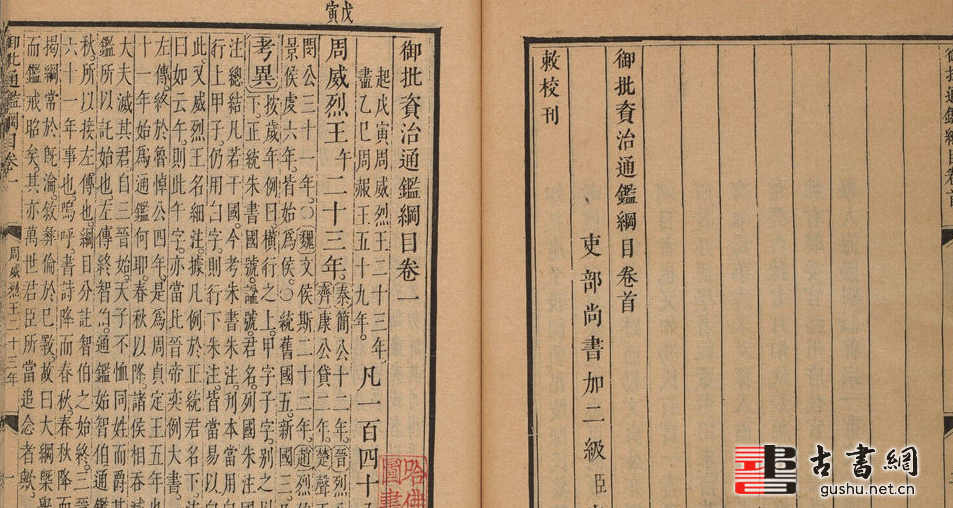 御批通鑑綱目卷首
御批資治通鑑綱目卷首
吏部尚書加二級臣
敕校刊
戊寅
御批資治通鑑綱目卷一
起戊寅周威烈王二十三年。
盡乙巳周赧王五十九年。
凡一百四十
周威烈王午二十三年。
秦簡公十二年。晉烈
齊康公貸二年。楚聲王
閔公三十一年。○魏文侯斯二十二年。趙烈侯
景侯虔六年皆始爲侯。○統舊國五。新國三。
考異
按歲年例曰。橫行之上。甲子字。別之
下。正統朱書國號。諡號。君名。
注總結凡若干國。今考朱書朱注。列本當用
行上甲子。仍用白字。則行下朱注。皆當易以白
此又威烈王名細注。據凡例於正統君名下。法
曰如云年。則此午字。亦當此晉帝奕例大書
左傳終於魯悼公四年。是爲周貞定王五年也
十一年始爲通鑑。何耶。春秋以降。諸侯相吞滅
大夫滅其君。自三晉始。天子不恤同姓而爵其
鑑所以託始也。左傳終智伯。通鑑始智伯通
秋。所以接左傳也。綱目分註智伯之始終。三
六十一年事也。嗚呼。書詩降而春秋。春秋降而
揭綱常於旣淪。敘彝倫於已斁。故曰大綱槩舉
而鑑戒昭矣。其亦萬世君臣所當追念者歟。
御批通鑑綱目卷一
周威烈王二十三年
哈佛
圖書
古書網
gushu.net.cn